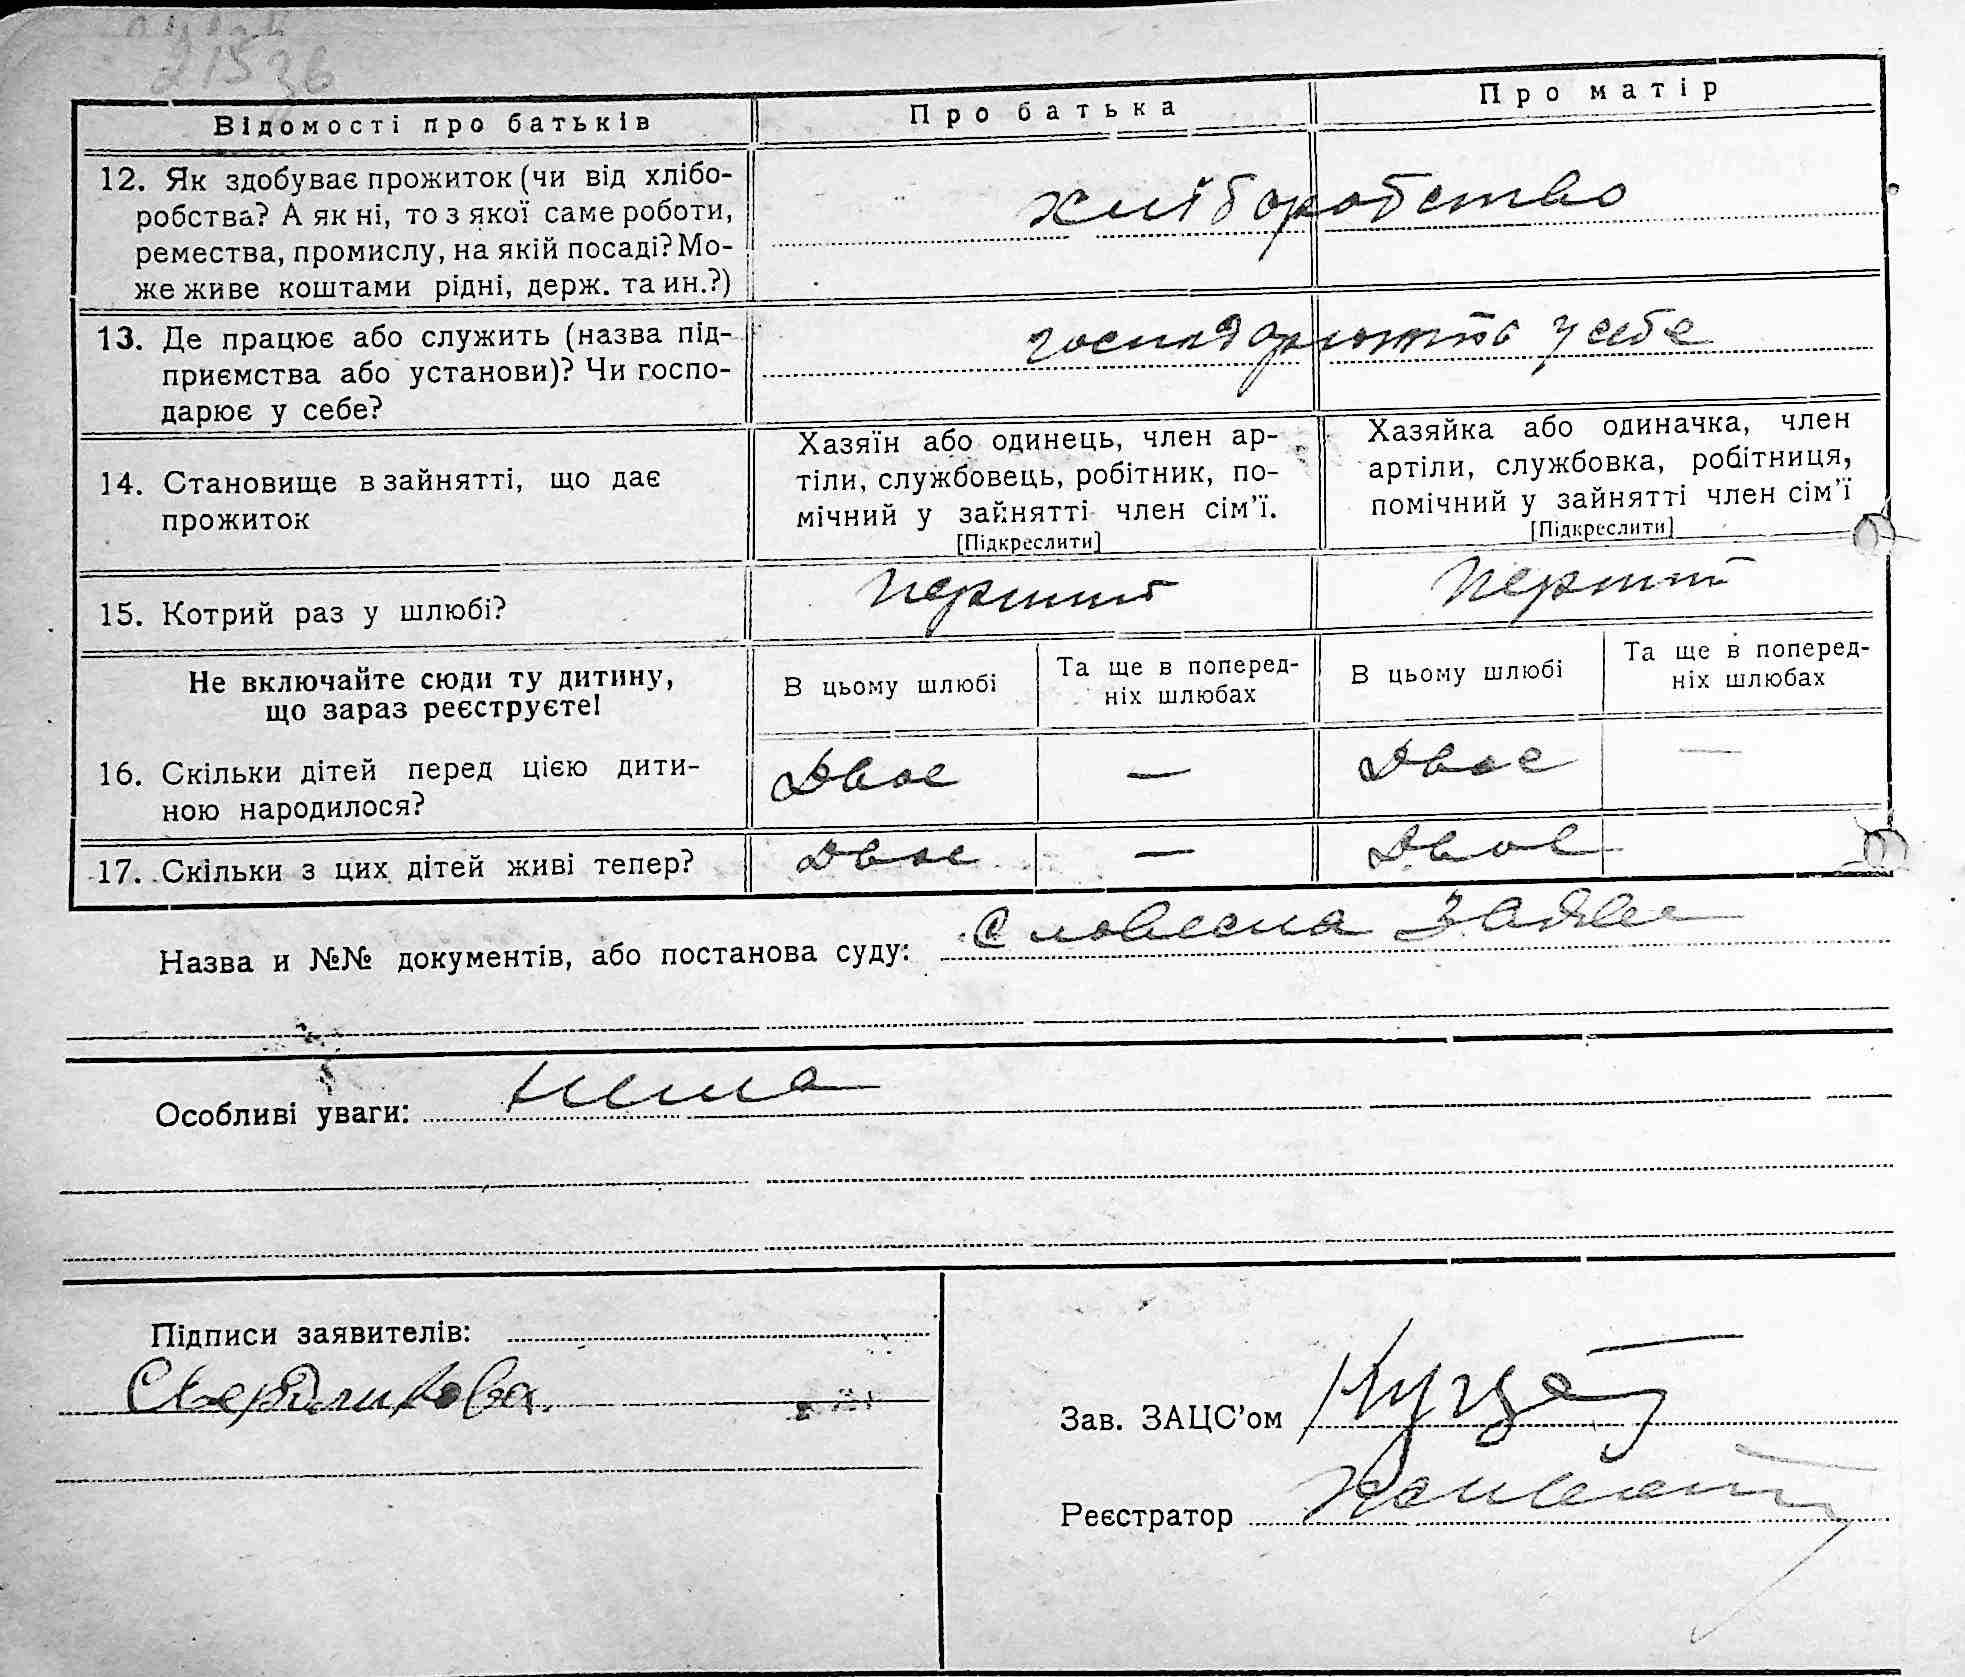 21536
Відомості про батьків
Про батька
Про матір
12. Як здобуває прожиток (чи від хлібо-
робства? А як ні, то з якої саме роботи,
ремества, промислу, на якій посаді? Мо-
же живе коштами рідні, держ. та ин.?)
хліборобство
13. Де працює або служить (назва під-
приємства або установи)? Чи госпо-
дарює у себе?
господарюють у себе
14. Становище в зайнятті, що дає
прожиток
Хазяїн або одинець, член ар-
тіли, службовець, робітник, по-
мічний у зайнятті член сім'ї.
[Підкреслити]
Хазяйка або одиначка, член
артіли, службовка, робітниця,
помічний у зайнятті член сім'ї
[Підкреслити]
15. Котрий раз у шлюбі?
перший
перший
Не включайте сюди ту дитину,
що зараз реєструєте!
В цьому шлюбі
Та ще в поперед-
ніх шлюбах
В цьому шлюбі
Та ще в поперед-
ніх шлюбах
16. Скільки дітей перед цією дити-
ною народилося?
Двоє
—
Двоє
—
17. Скільки з цих дітей живі тепер?
Двоє
—
Двоє
Назва и №№ документів, або постанова суду: Словесна заява
Особливі уваги: нема
Підписи заявителів:
Зав. ЗАЦС'ом
Реєстратор